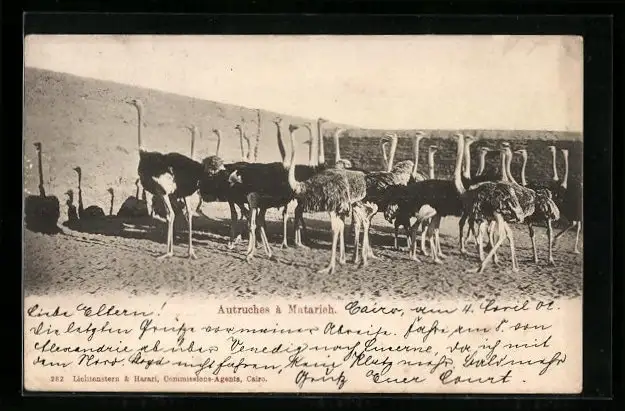 Autruches à Matarieh.
Liebe Eltern! Cairo, am 4. April 01.
Die letzten Grüße vor meiner Abreise. Fahre am 8. von
Alexandrie ab über Venedig nach Luzerne. Da ich mit
dem Nord. Loyd nicht fahren, kein Platz mehr. Bald mehr
Gruß Euer Court.
282 Lichtenstern & Harari, Commissions-Agents, Cairo.